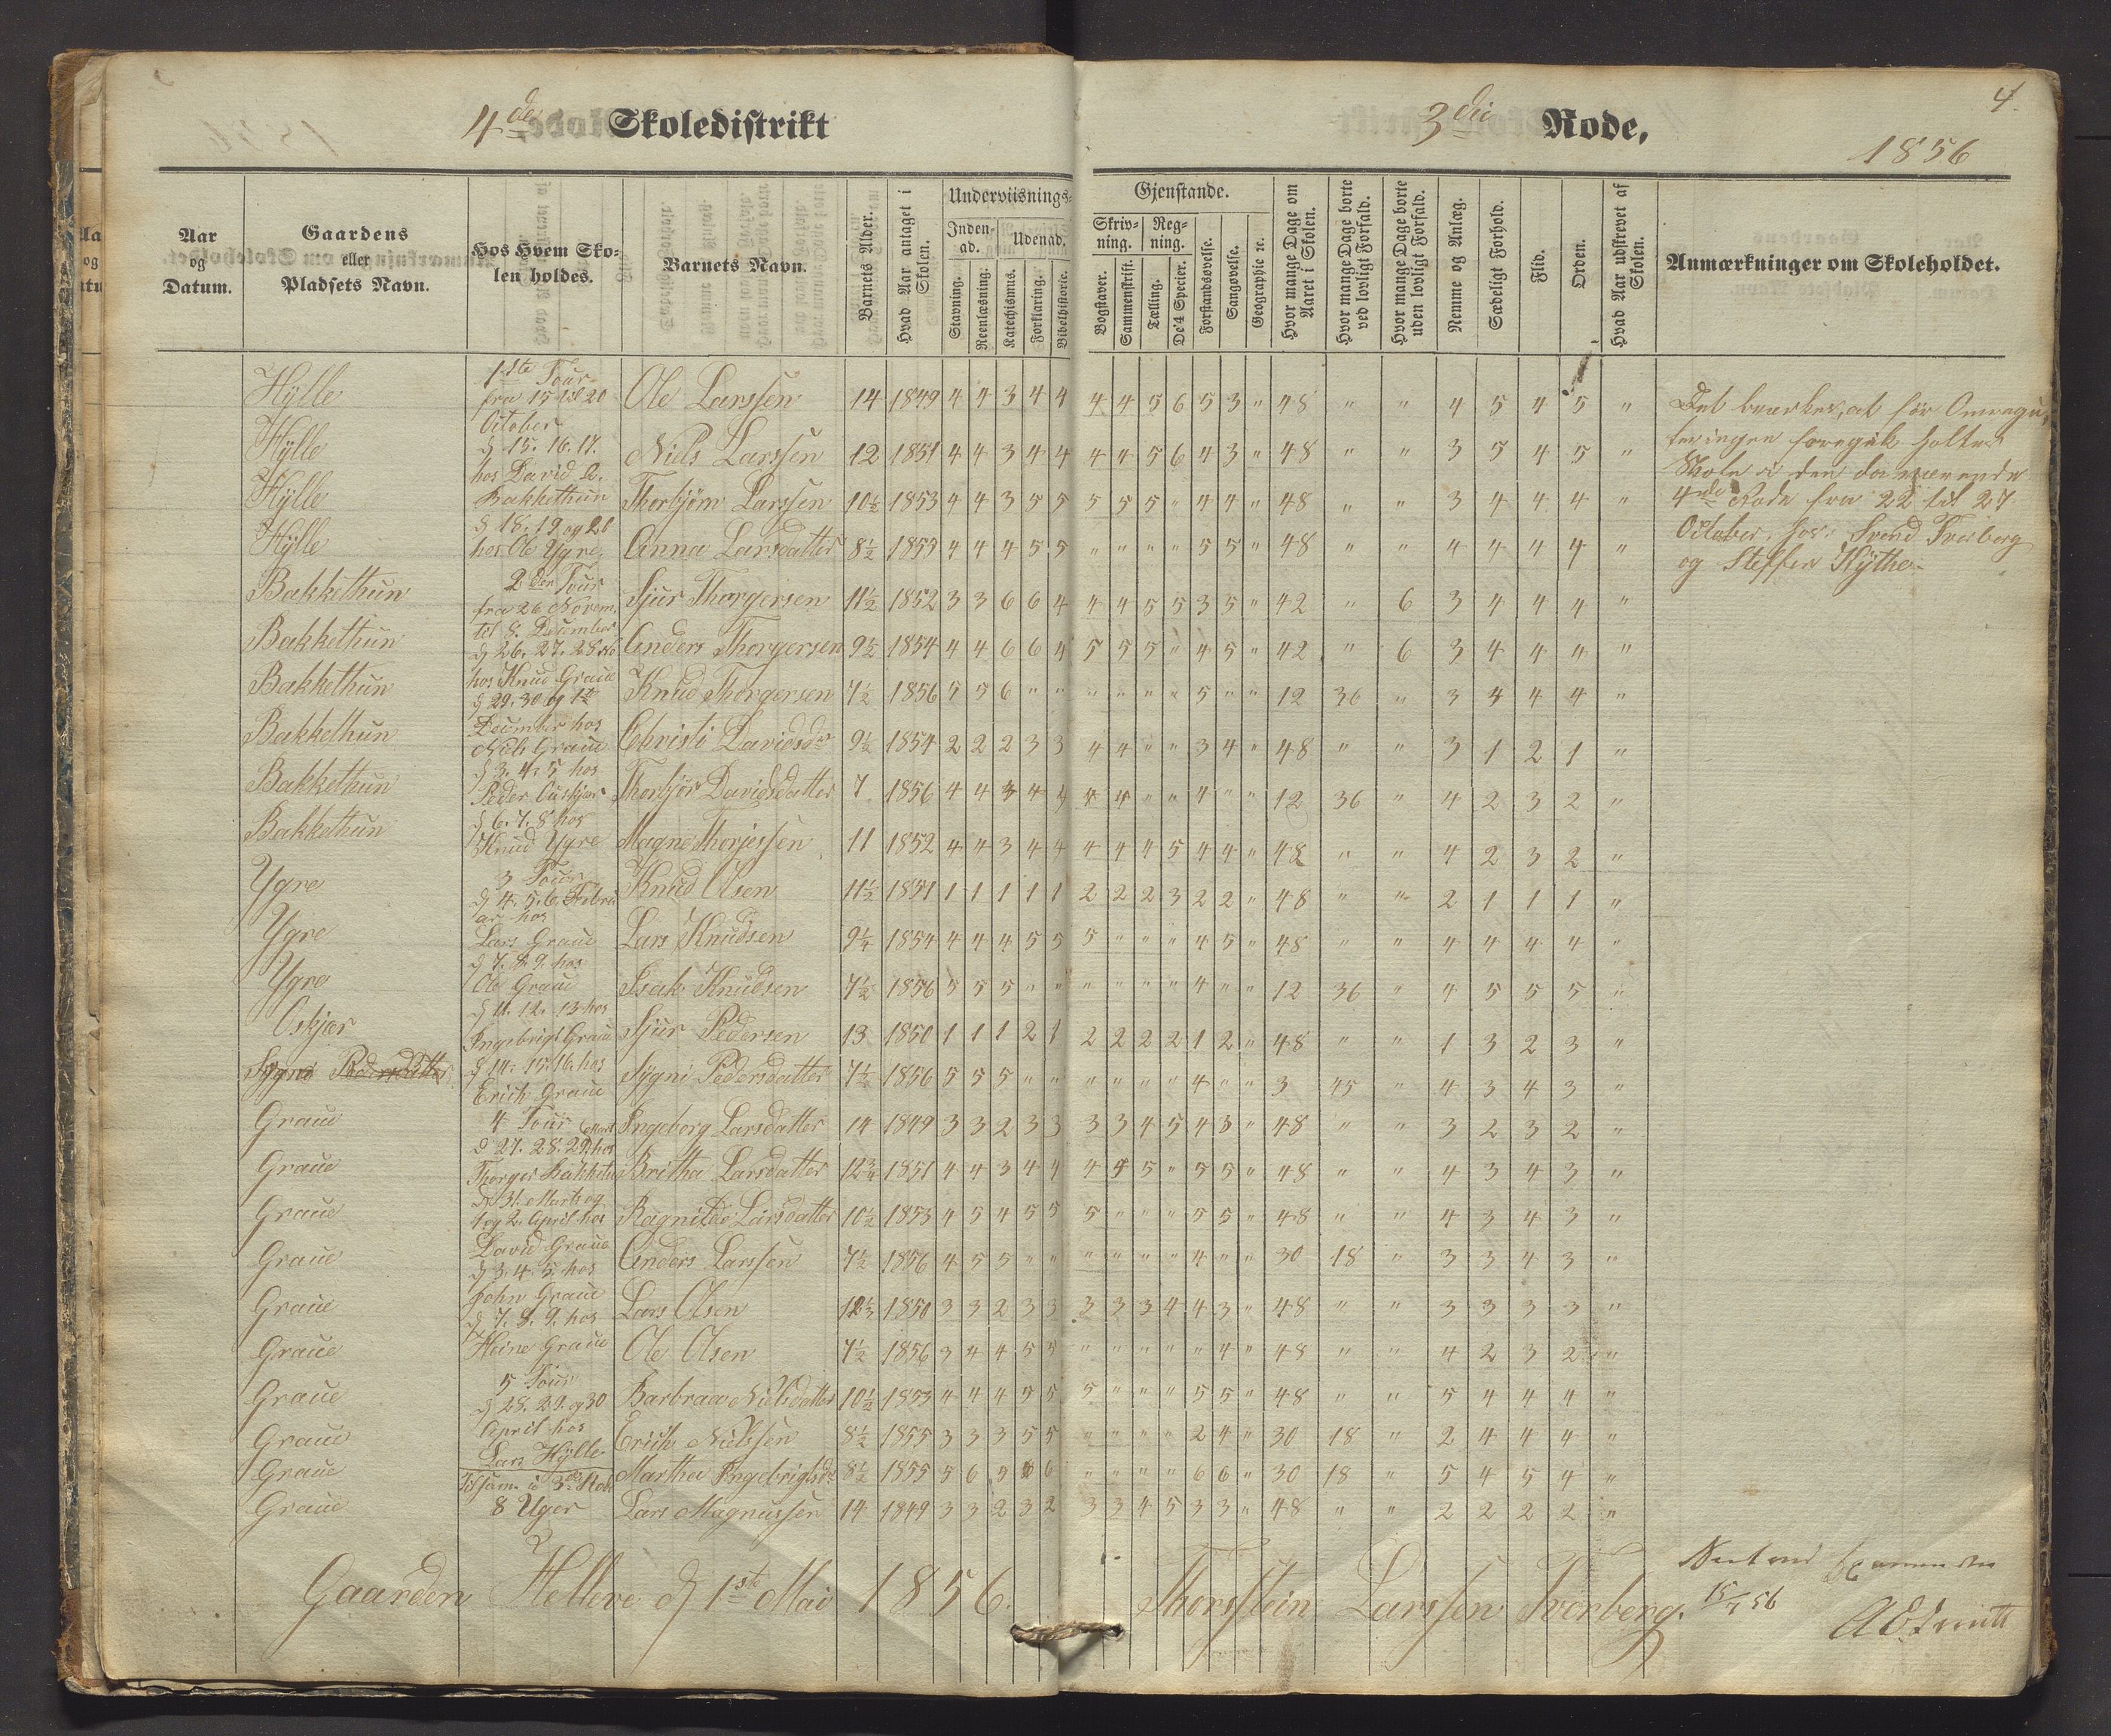 4de Skoledistrikt
3die Rode,
4.
1856
Aar og Datum.
Gaardens eller Pladsets Navn.
Hos Hvem Skolen holdes.
Barnets Navn.
Barnets Alder.
Hvad Aar antaget i Skolen.
Underviisnings-
Gjenstande.
Inden-ad.
Udenad.
Skriv-ning.
Reg-ning.
Stavning.
Reenlæsning.
Katechismus.
Forklaring.
Bibelhistorie.
Bogstaver.
Sammenskrift.
Tælling.
De 4 Specier.
Forstandsøvelse.
Sangøvelse.
Geographie ec.
Hvor mange Dage om Aaret i Skolen.
Hvor mange Dage borte ved lovligt Forfald.
Hvor mange Dage borte uden lovligt Forfald.
Nemme og Anlæg.
Sædeligt Forhold.
Flid.
Orden.
Hvad Aar udskrevet af Skolen.
Anmærkninger om Skoleholdet.
Hÿlle Ole Larssen 14 1849 4 4 3 4 4 4 4 5 6 5 3 " 48 " " 4 5 4 5 "
Hÿlle Niels Larssen 12 1851 4 4 3 4 4 4 4 5 6 4 3 " 48 " " 3 5 4 5 "
Hÿlle Thorbjørn Larssen 10½ 1853 4 4 3 5 5 5 5 5 " 4 4 " 48 " " 3 4 4 4 "
Hÿlle Anna Larsdatter 8½ 1853 4 4 4 5 5 " " " " 5 5 " 48 " " 4 4 4 4 "
Bakkethun Sjur Thorgersen 11½ 1852 3 3 6 6 4 4 4 5 5 3 5 " 42 " 6 3 4 4 4 "
Bakkethun Anders Thorgersen 9½ 1854 4 4 6 6 4 5 5 5 " 4 5 " 42 " 6 3 4 4 4 "
Bakkethun Knud Thorgersen 7½ 1856 5 5 6 " " " " " " 5 " " 12 36 " 3 4 4 4 "
Bakkethun Christi Davidsdr 9½ 1854 2 2 2 3 3 4 4 " " 3 4 " 48 " " 3 1 2 1 "
Bakkethun Thorbjør Davidsdatter 7 1856 4 4 3 4 4 4 4 " " 4 " " 12 36 " 4 2 3 2 "
Bakkethun Magne Thorjessen 11 1852 4 4 3 4 4 4 4 4 5 4 4 " 48 " " 4 2 3 2 "
Ygre Knud Olsen 11½ 1851 1 1 1 1 1 2 2 2 3 2 2 " 48 " " 2 1 1 1 "
Ygre Lars Knudsen 9¼ 1854 4 4 4 5 5 5 " " " 4 5 " 48 " " 4 4 4 4 "
Ygre Isak Knudsen 7½ 1856 5 5 5 " " " " " " 4 " " 12 36 " 4 5 5 5 "
Oskjær Sjur Pedersen 13 1850 1 1 1 2 1 2 2 2 2 1 2 " 48 " " 1 3 2 3 "
Sygni Pedersdatter Sygni Pedersdatter 7½ 1856 5 5 5 " " " " " " 4 " " 3 45 " 4 3 4 3 "
Graue Ingeborg Larsdatter 14 1849 3 3 2 3 3 3 3 4 5 4 3 " 48 " " 3 2 3 2 "
Graue Britha Larsdatter 12¾ 1851 4 4 3 4 4 4 4 5 " 5 5 " 48 " " 4 3 4 3 "
Graue Ragnilde Larsdatter 10½ 1853 4 5 4 5 5 5 " " " 5 5 " 48 " " 4 3 4 3 "
Graue Anders Larssen 7½ 1856 4 5 5 " " " " " " 4 " " 30 18 " 3 3 4 3 "
Graue Lars Olsen 12⅓ 1850 3 3 2 3 3 3 3 3 4 4 3 " 48 " " 3 3 3 3 "
Graue Ole Olsen 7½ 1856 3 4 4 5 5 " " " " " 4 " 48 " " 4 2 3 2 "
Graue Barbraa Nielsdatter 10½ 1853 4 4 4 5 5 5 " " " 5 5 " 48 " " 5 4 4 4 "
Graue Erich Nielssen 8½ 1855 3 3 3 5 5 " " " " 2 4 " 30 18 " 2 4 4 4 "
Graue Martha Ingebrigtsdr 8½ 1855 5 6 5 6 6 " " " " 6 6 " 30 18 " 5 4 5 4 "
Graue Lars Magnussen 14 1849 3 3 2 3 2 3 3 4 5 3 3 " 48 " " 2 2 2 2 "
1ste Tour
fra 15 til 20
October
d 15. 16. 17.
hos David
Bakkethun
d 18. 19 og 20
hos Ole Ygre,
2den Tour
fra 26 Novem.
til 8. December
d 26. 27. 28
hos Knud Graue
d 29. 30 og 1ste
December hos
Niels Graue
d 3. 4. 5 hos
Peder Auskjær
d 6. 7. 8 hos
Knud Ygre
3 Tour
d 4. 5. 6. Febru
ar hos
Lars Graue
d 7. 8. 9. hos
Ole Graue
d 11. 12. 13 hos
Ingebrigt Graue
d 14. 15. 16. hos
Erich Graue
4 Tour
d 27. 28. 29. Marts hos
Thorger Bakkethun
d 31. Marts og
1 og 2. April hos
David Graue
d 3. 4. 5. hos
John Graue
d 7. 8. 9. hos
Heine Graue
5 Tour
d 28. 29. og 30
April hos
Lars Hÿlle
Tilsam. i 3die Rode
8 Uger
Det bemærkes, at før Omregu-
leringen foregik holtes
Skole i den da værende
4de Rode fra 22 til 27
October, hos: Svend Tverberg
og Steffen Kÿthe.
Gaarden Helleve d 1ste Mai 1856.
Thorsstein Larssen Tverberg.
15/7 56